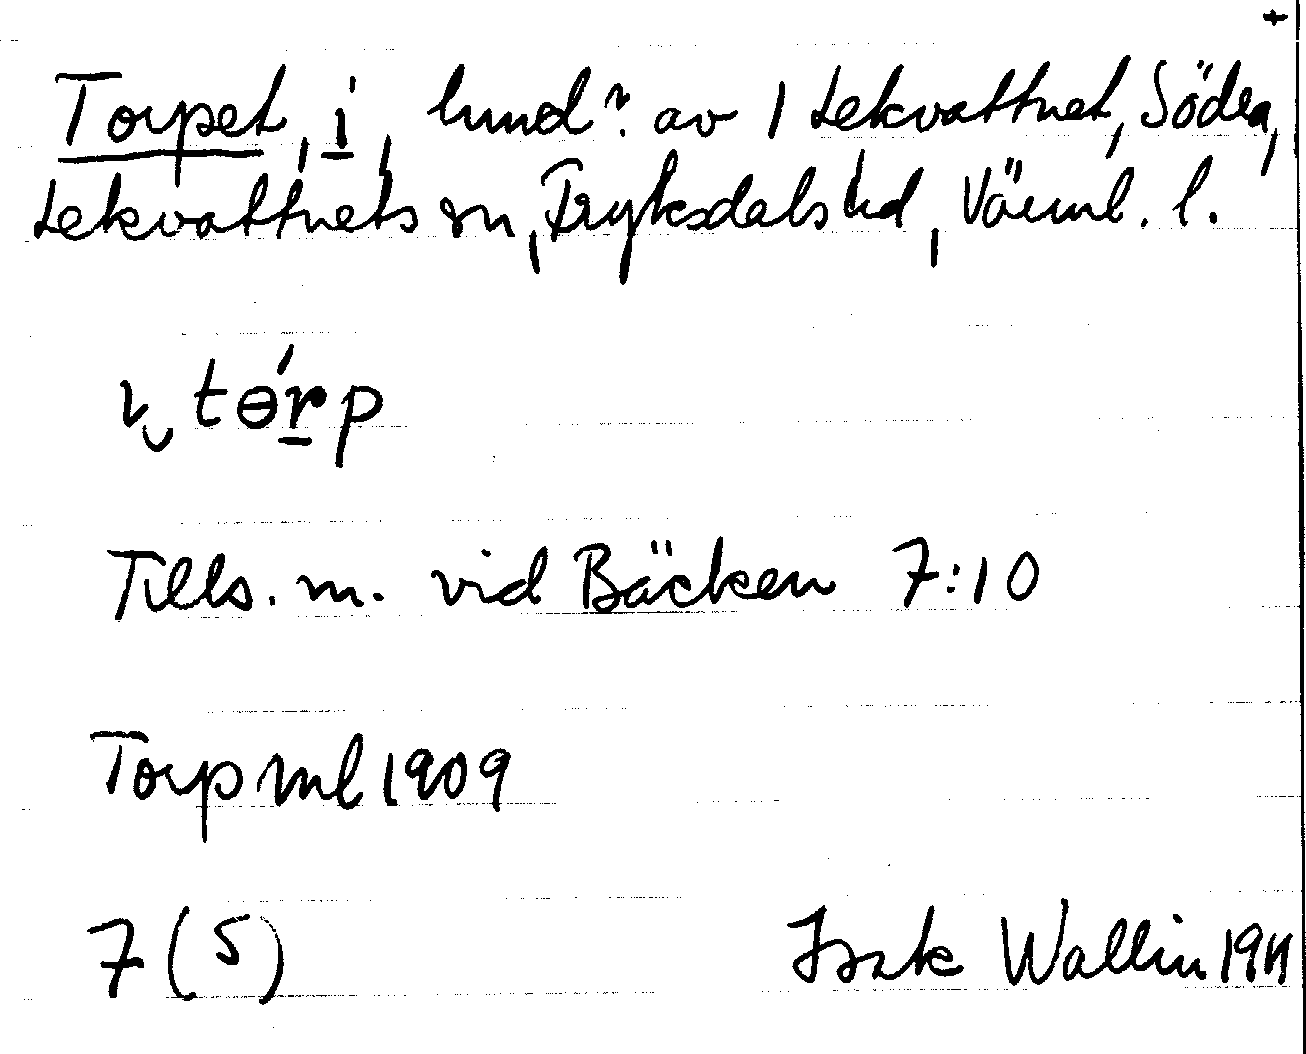 +
Torpet, i, lund? av 1 Lekvattnet, Södra,
Lekvattnets sn, Fryksdals hd, Värml. l.
tɵ́rp
Tills. m. vid Bäcken 7:10
Torp ml 1909
7 (5)
Isak Wallin 1911